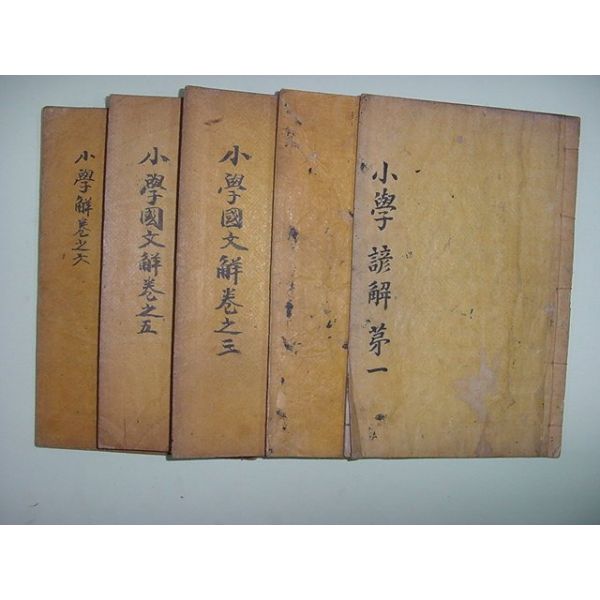 小學 諺解 苐一
小學國文解卷之三
小學國文解卷之五
小學解卷之六